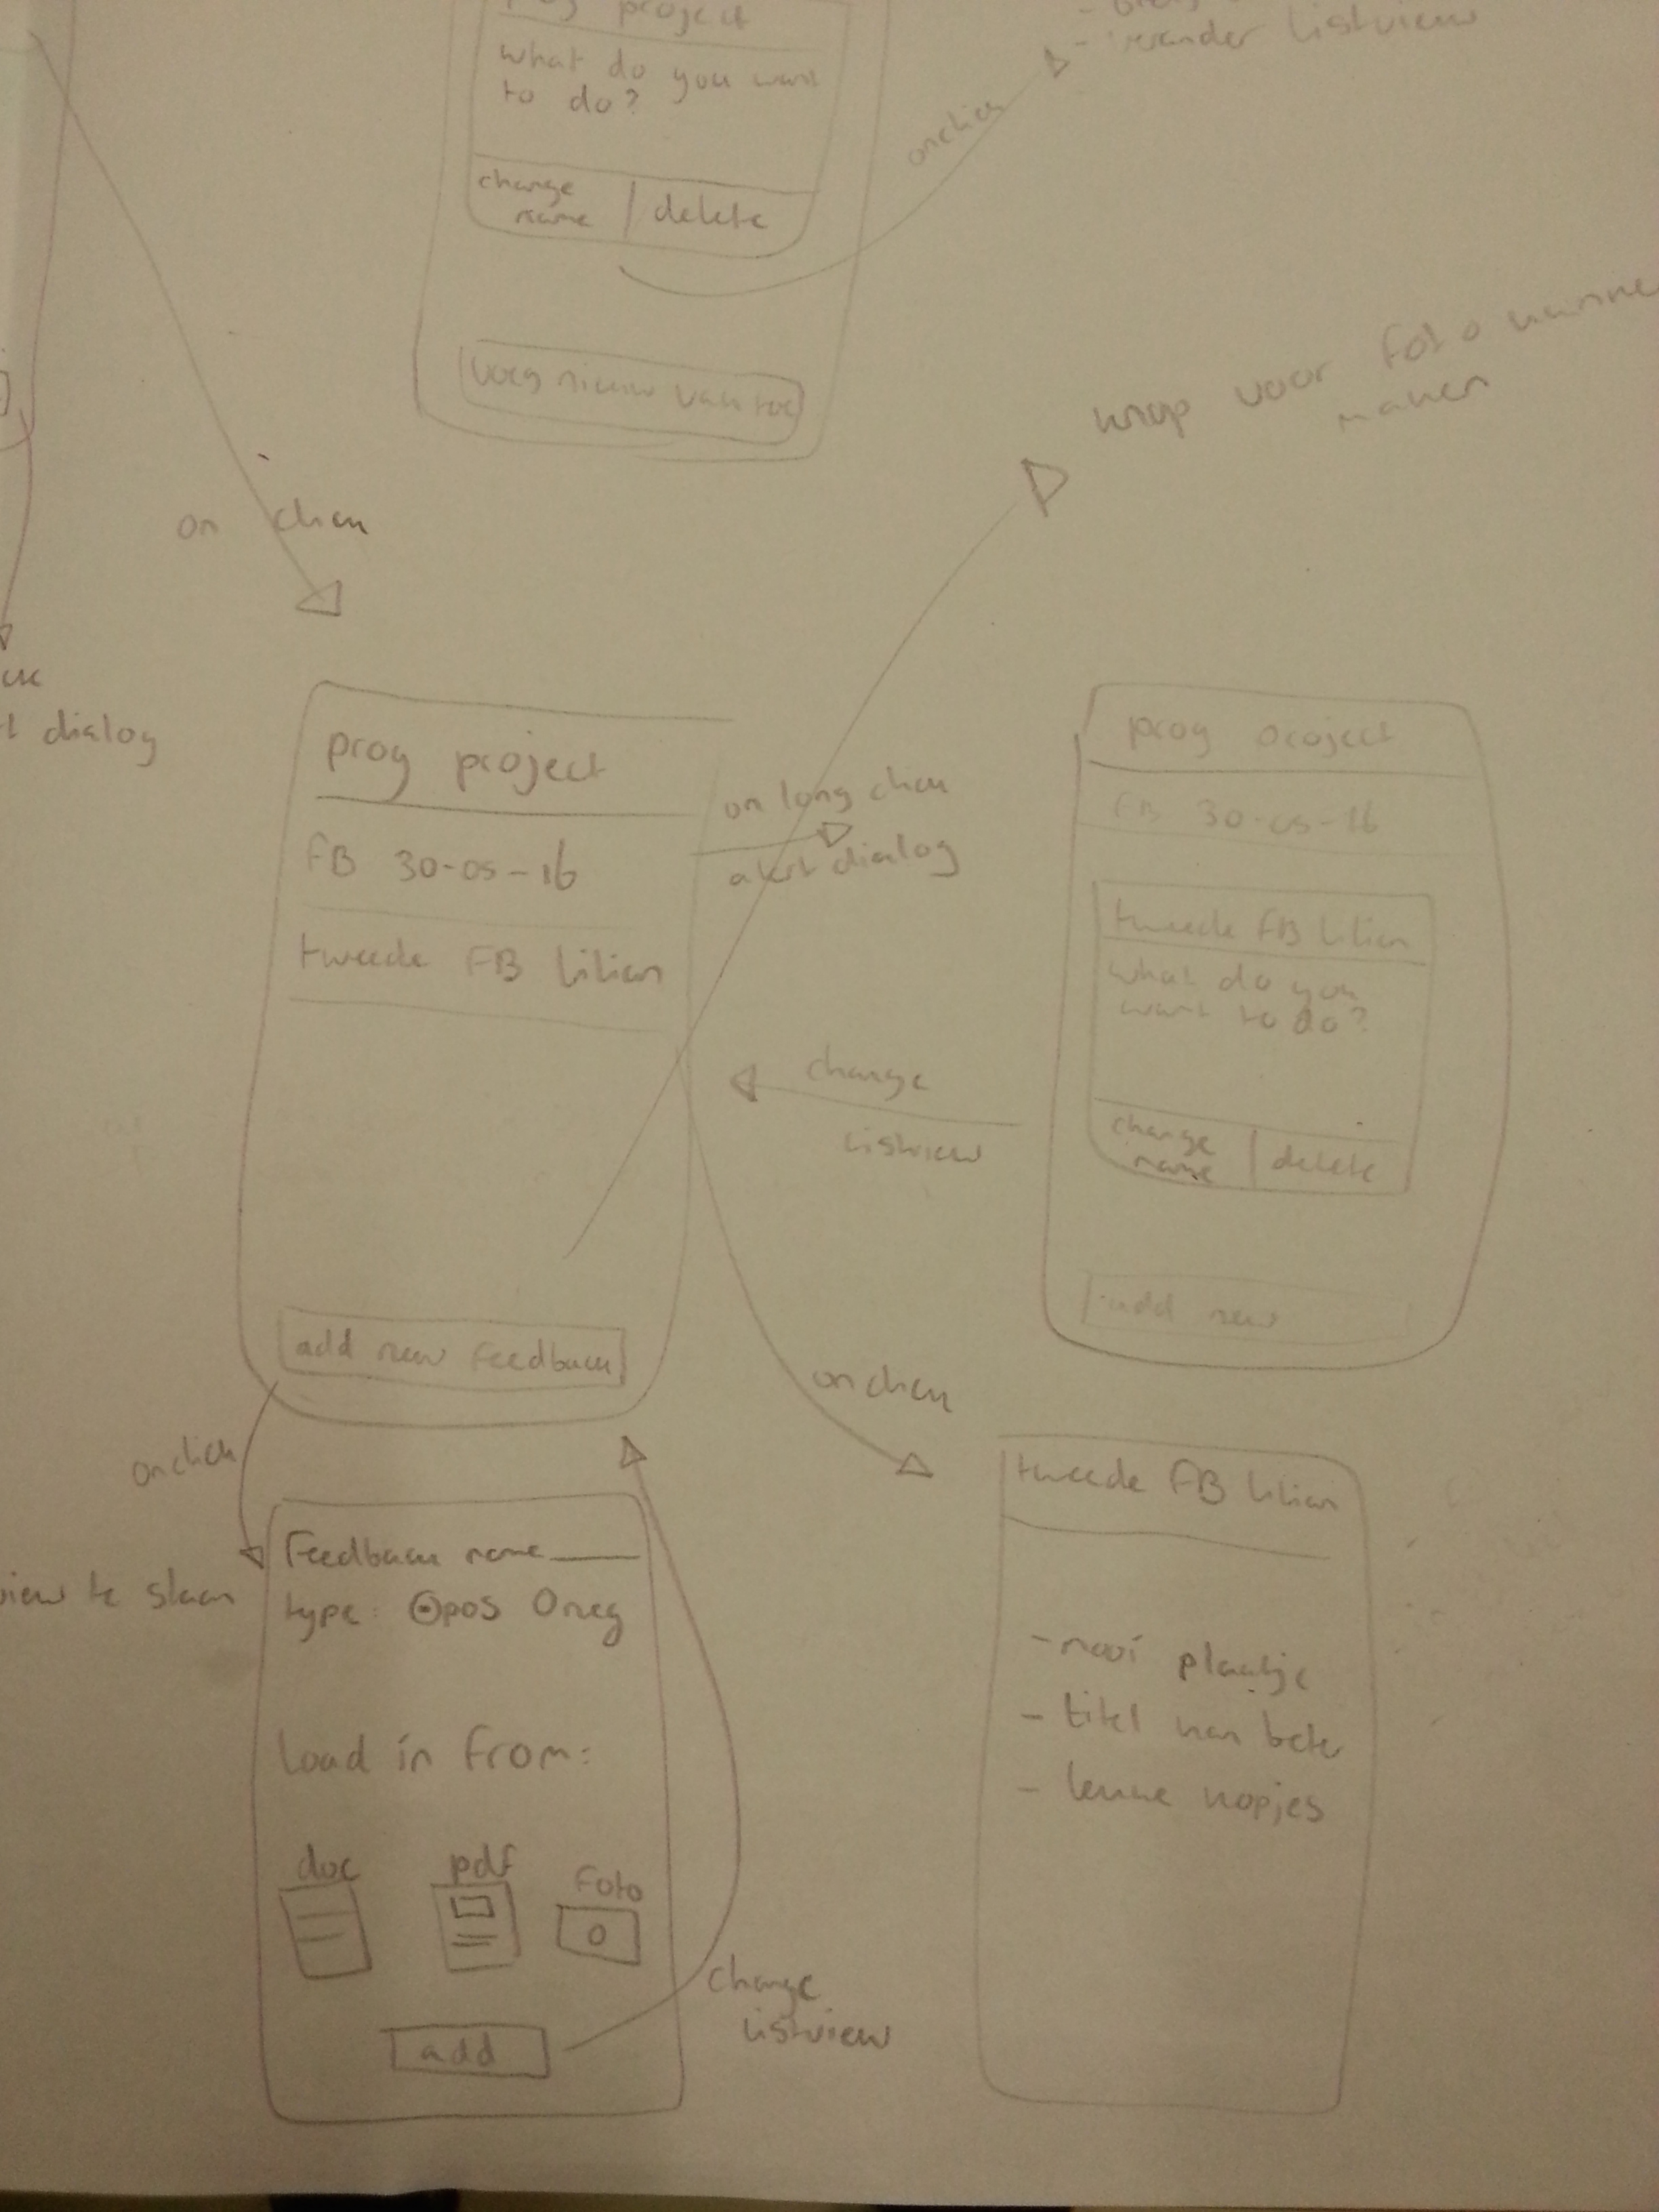 project
what do you want
to do?
change
name
delete
voeg nieuw vak toe
onclick
- verander listview
knop voor foto kunnen
maken
on click
dialog
prog project
FB 30-05-16
tweede FB Lilian
add new feedback
on long click
alert dialog
change
listview
prog project
FB 30-05-16
tweede FB Lilian
what do you
want to do?
change
name
delete
add new
onclick
onclick
te slaan
Feedback name
type: pos neg
load in from:
doc
pdf
foto
add
change
listview
tweede FB Lilian
- mooi plaatje
- titel kan beter
- leuke knopjes